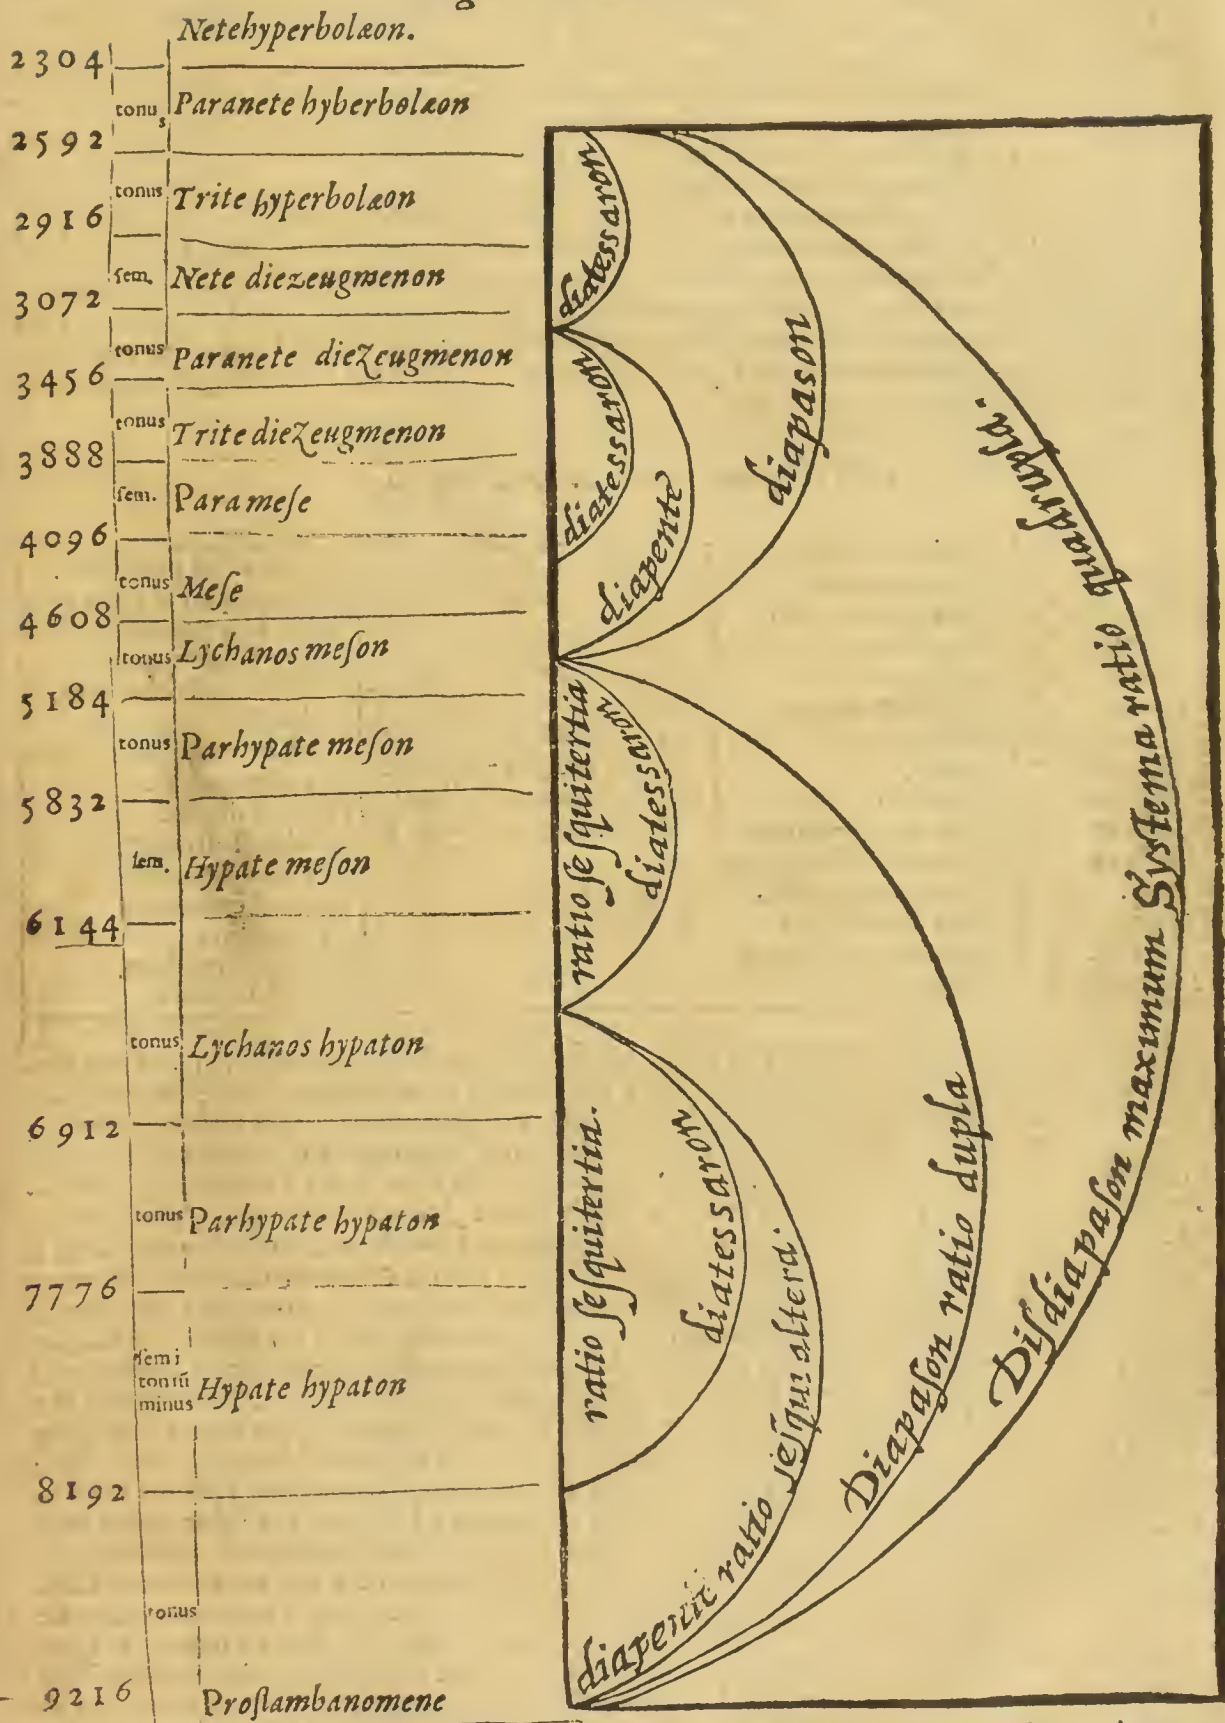 Netehyperbolæon.
2304
tonus Paranete hyberbolæon
2592
tonus Trite hyperbolæon
2916
ſem. Nete diezeugmenon
3072
tonus Paranete diezeugmenon
3456
tonus Trite diezeugmenon
3888
ſem. Parameſe
4096
tonus Meſe
4608
tonus Lychanos meſon
5184
tonus Parhypate meſon
5832
ſem. Hypate meſon
6144
tonus Lychanos hypaton
6912
tonus Parhypate hypaton
7776
ſemi
toniū
minus Hypate hypaton
8192
tonus
9216 Proſlambanomene
diatessaron
diatessaron
diapente
diapason
ratio ſeſquitertia
diatessaron
ratio ſeſquitertia.
diatessaron
diapente ratio ſeſqui altera.
Diapaſon ratio dupla
Diſdiapaſon maximum Systema ratio quadrupla.